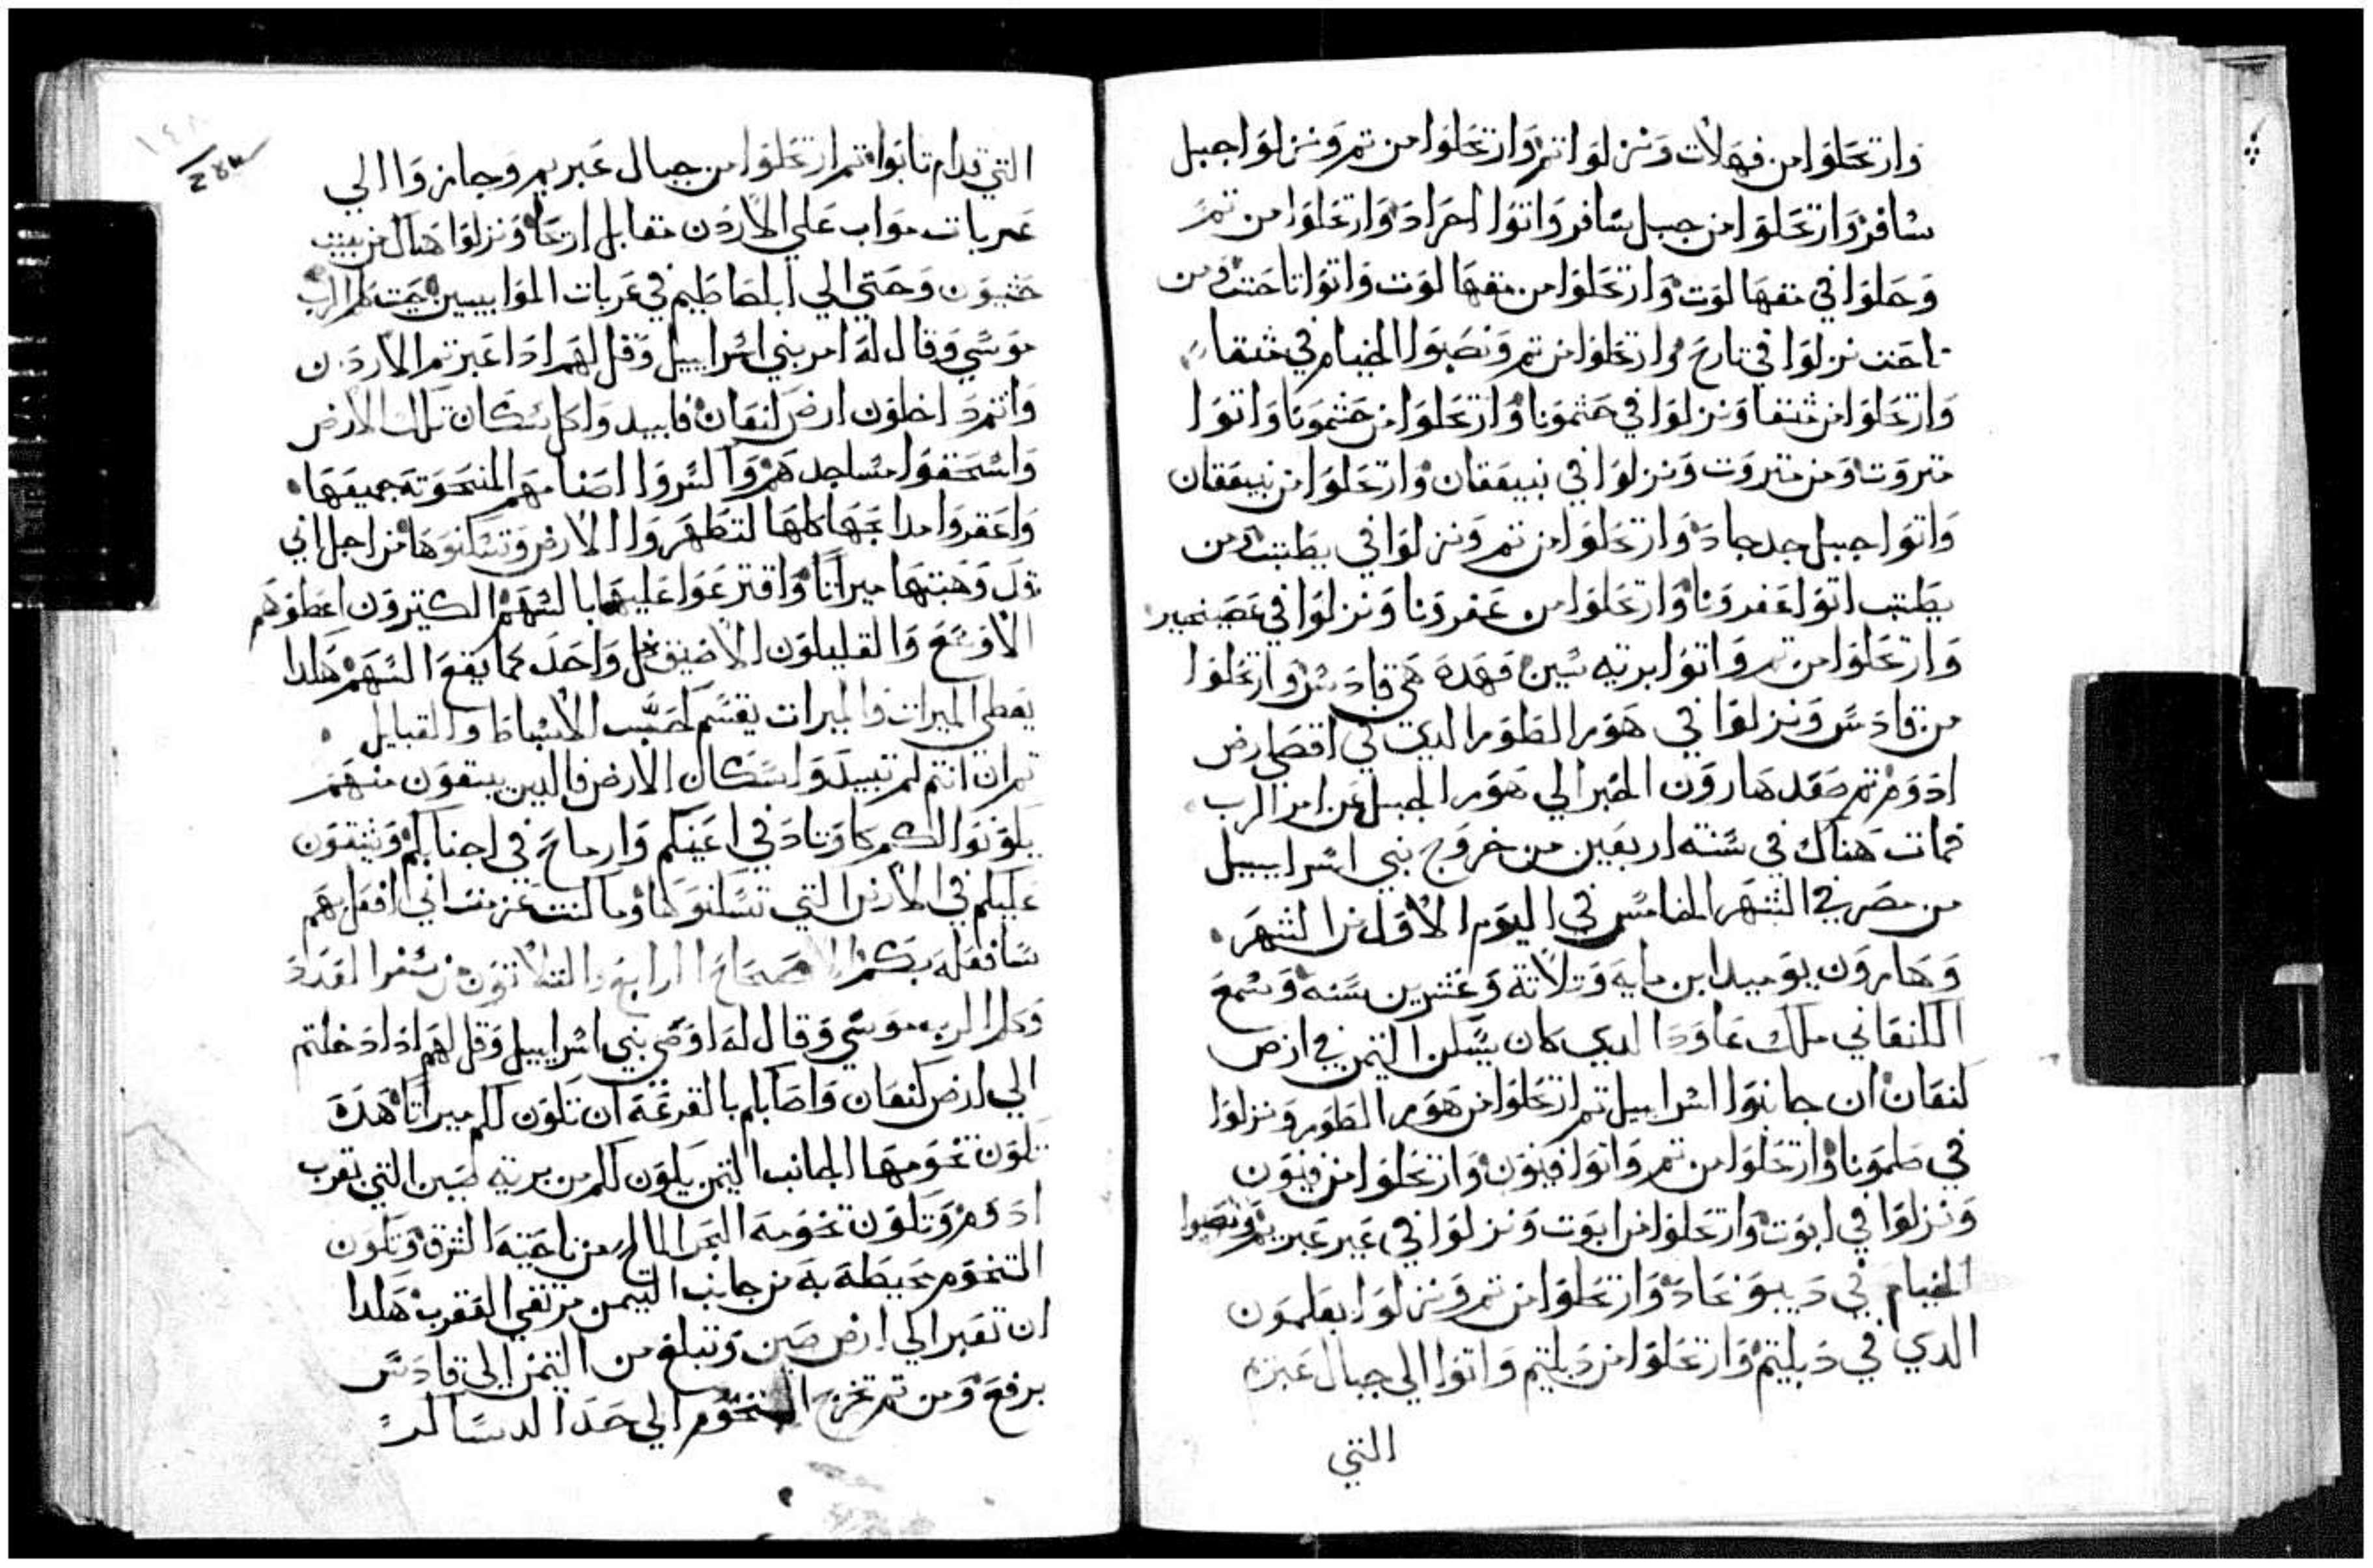 وارتحلوا من فهلات ونزلوا تم وارتحلوا من تم ونزلوا جبل
شافر وارتحلوا من جبل شافر واتوا الحراد وارتحلوا من تم
وحلوا في مقهالوت وارتحلوا من مقهالوت واتوا تاحت ومن
تاحت نزلوا في تارح وارتحلوا من تم ونصبوا الخيام في متقا
وارتحلوا من متقا ونزلوا في حشمونا وارتحلوا من حشمونا واتوا
متروت ومن متروت ونزلوا في بنيعقان وارتحلوا من بنيعقان
واتوا جبل جدجاد وارتحلوا من تم ونزلوا في يطبت ومن
يطبت اتوا عفرونا وارتحلوا من عفرونا ونزلوا في عصيخبير
وارتحلوا من تم واتوا برية سين فهده هي قادس وارتحلوا
من قادس ونزلوا في هور الطور الدي في اقصي ارض
ادوم تم صعد هارون الحبر الي هور الجبل عن امر الرب
فمات هناك في سنة اربعين من خروج بني اسراييل
من مصر في الشهر الخامس في اليوم الاول من الشهر
وهارون يوميد ابن مايه وتلاتة وعشرين سنه وسمع
الكنعاني ملك عاودا الدي كان يسكن التيمن في ارض
كنعان ان جا بنوا اسراييل تم ارتحلوا من هور الطور ونزلوا
في صلمونا وارتحلوا من تم واتوا فينون وارتحلوا من فينون
ونزلوا في ابوت وارتحلوا من ابوت ونزلوا في عبر عبريم ونصبوا
الخيام في ديبونحاد وارتحلوا من تم ونزلوا بعلمون
الدي في دبلتيم وارتحلوا من دبلتيم واتوا الي جبال عبريم
التي
التي قدام نابوا تم ارتحلوا من جبال عبريم وجازوا الي
عربات مواب علي الاردن مقابل اريحا ونزلوا هناك من بيت
وحتي الي ابلصاطيم في عربات الموابيين حيت كلم الرب
موسي وقال له امر بني اسراييل وقل لهم ادا عبرتم الاردن
وانتم داخلون ارض كنعان فابيدوا كل سكان تلك الارض
واسحقوا مساجدهم واكسروا اصنامهم المنحوتة جميعها
واعقروا مدابحها كلها لتطهروا الارض وتسكنوها من اجل اني
وهبتها ميراتا واقترعوا عليها بالسهم الكتيرون اعطوهم
الاوسع والقليلون الاضيق كل واحد كما يقع السهم هكدا
يعطي الميرات والميرات يقسم لحسب الاسباط والقبايل
تم ان انتم لم تبيدوا سكان الارض فالدين يبقون منهم
يكونوا لكم كاوتاد في اعينكم وارماح في اجنابكم ويشقون
عليكم في الارض التي تسكنوها وما كنت عزمت اني افعل بهم
سافعله بكم الاصحاح الرابع والتلاتون من سفر العدد
وكلم الرب موسي وقال له اوصي بني اسراييل وقل لهم ادا دخلتم
الي ارض كنعان واصابكم بالقرعة ان تكون لكم ميراتا هده
تكون تخومها الجانب التيمن يكون لكم من برية صين التي تقرب
ادوم وتكون تخومه البحر المالح من ناحية الشرق وتكون
التخوم محيطة به من جانب التيمن مرتقي العقرب هكدا
ان تعبر الي ارض صين وتبلغ من التيمن الي قادس
برفع ومن تم تخرج التخوم الي حد